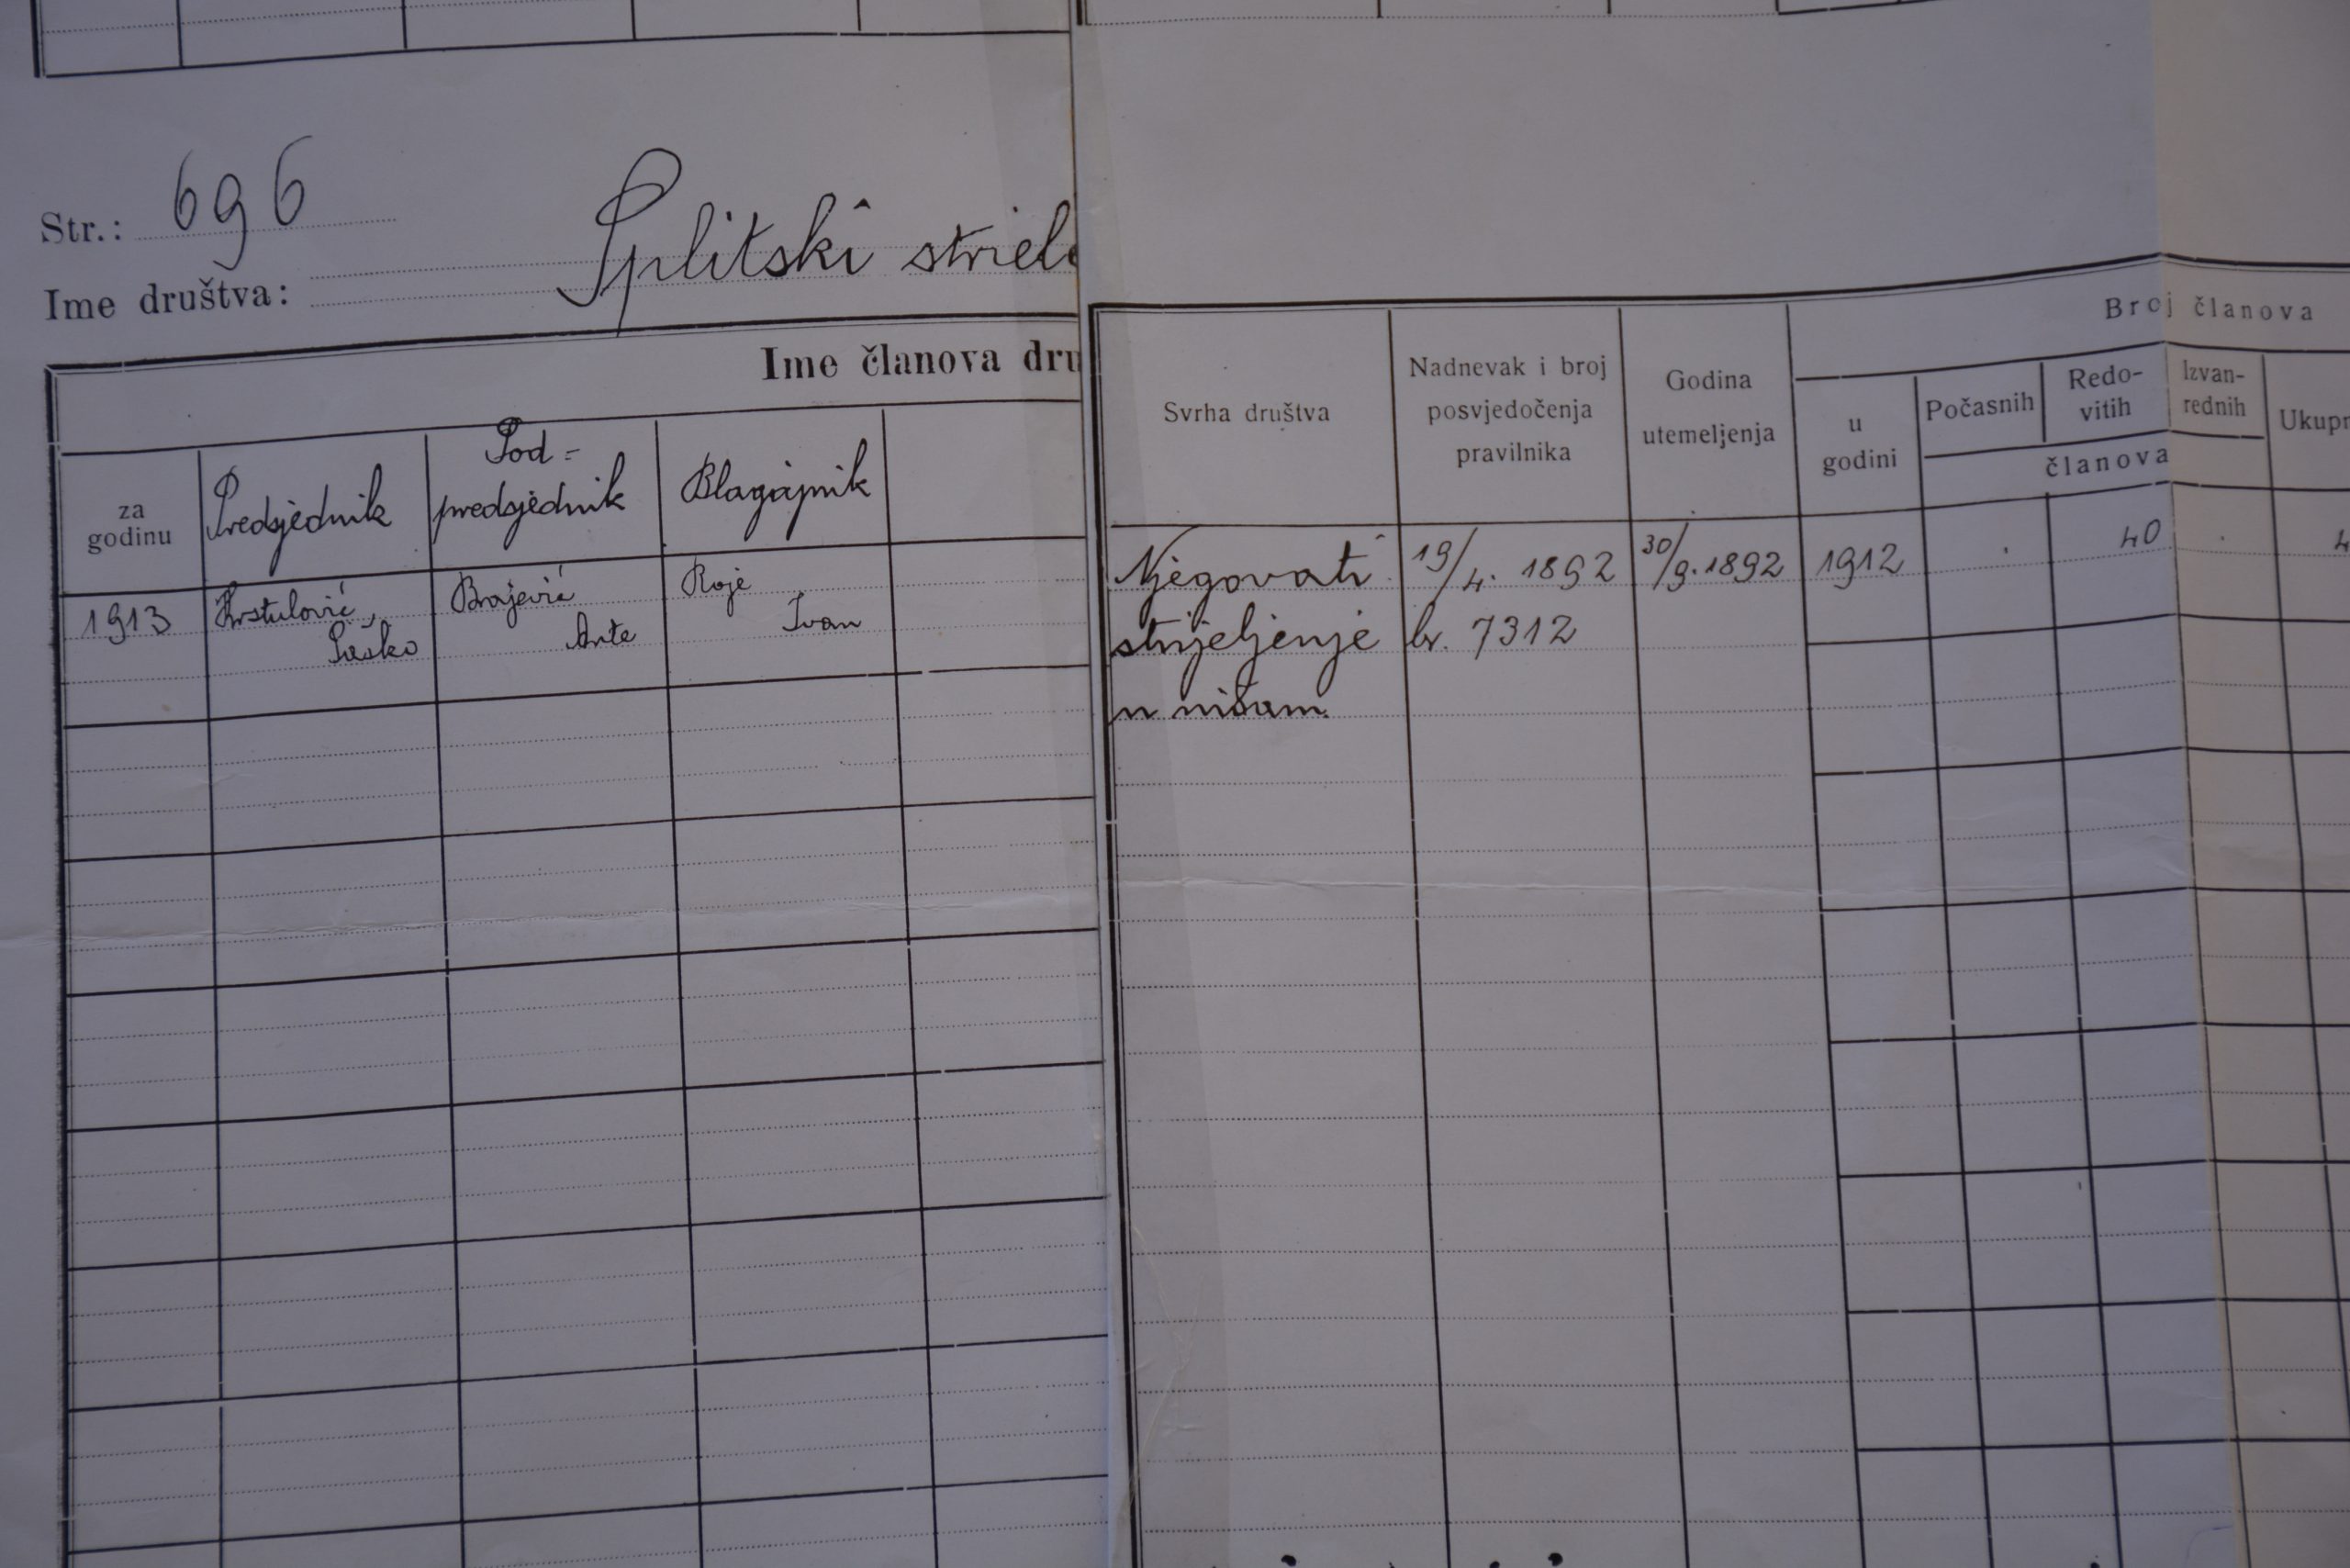 Str.: 696
Ime društva: Splitski striel
Ime članova dru
za
godinu
Predsjednik
Pod-
predsjednik
Blagajnik
1913
Krstulović
Paško
Brajević
Ante
Roje
Ivan
Svrha društva
Nadnevak i broj
posvjedočenja
pravilnika
Godina
utemeljenja
Broj članova
u
godini
Počasnih
Redo-
vitih
Izvan-
rednih
Ukupn
članova
Njegovati
strijeljenje
u nišam.
19/4. 1892
br. 7312
30/9. 1892
1912
40
4